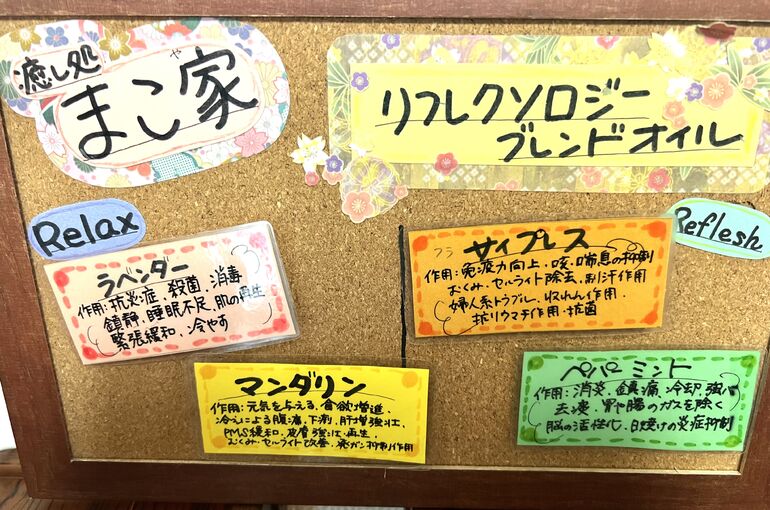 癒し処
まこ家
や
リフレクソロジー
ブレンドオイル
Relax
Reflesh
ラベンダー
作用:抗炎症、殺菌、消毒
鎮静、睡眠不足、肌の再生
緊張緩和、冷やす
サイプレス
作用:免疫力向上、咳、喘息の抑制
むくみ、セルライト除去、制汗作用
婦人系トラブル、収れん作用
抗リウマチ作用・抗菌
マンダリン
作用:元気を与える、食欲増進
冷えによる腹痛、下痢、肝増強壮、
PMS緩和、皮膚強壮・再生、
むくみ、セルライト改善、発ガン抑制作用
ペパーミント
作用:消炎、鎮痛、冷却、強心
去痰、胃や腸のガスを除く
脳の活性化、日焼けの炎症抑制